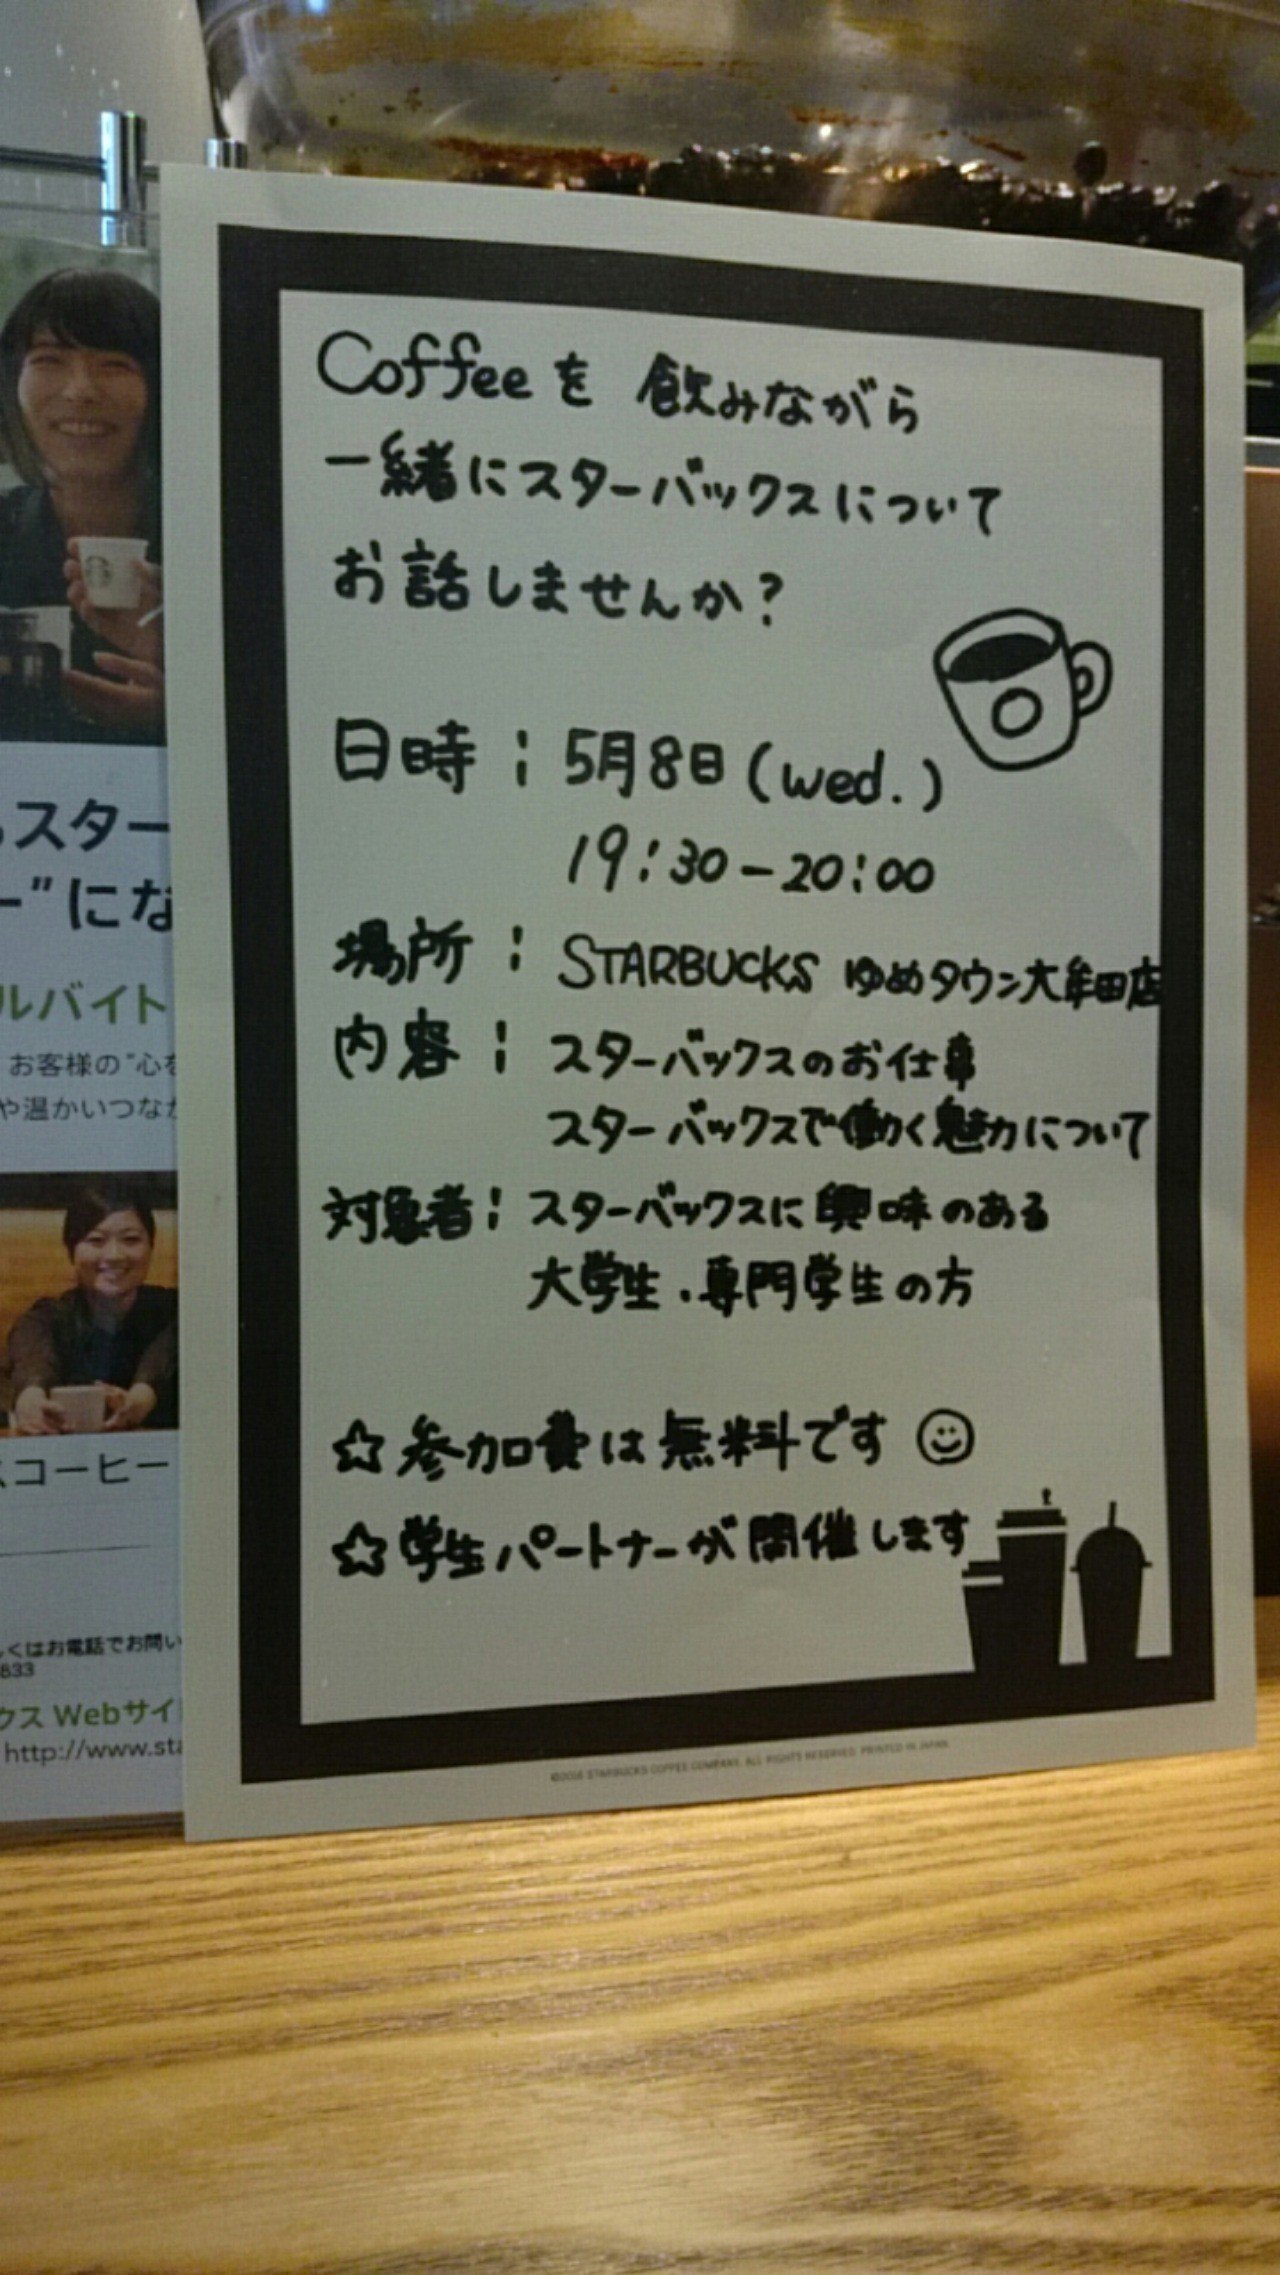 Coffeeを 飲みながら
一緒にスターバックスについて
お話しませんか？
日時：5月8日(wed.)
19:30-20:00
場所：STARBUCKS ゆめタウン大牟田店
内容：スターバックスのお仕事
スターバックスで働く魅力について
対象者：スターバックスに興味のある
大学生・専門学生の方
☆参加費は無料です
☆学生パートナーが開催します
©2016 STARBUCKS COFFEE COMPANY. ALL RIGHTS RESERVED. PRINTED IN JAPAN.
スター
ー"にな
ルバイト
お客様の"心を
や温かいつなが
スコーヒー
しくはお電話でお問い
833
クス Webサイ
http://www.sta